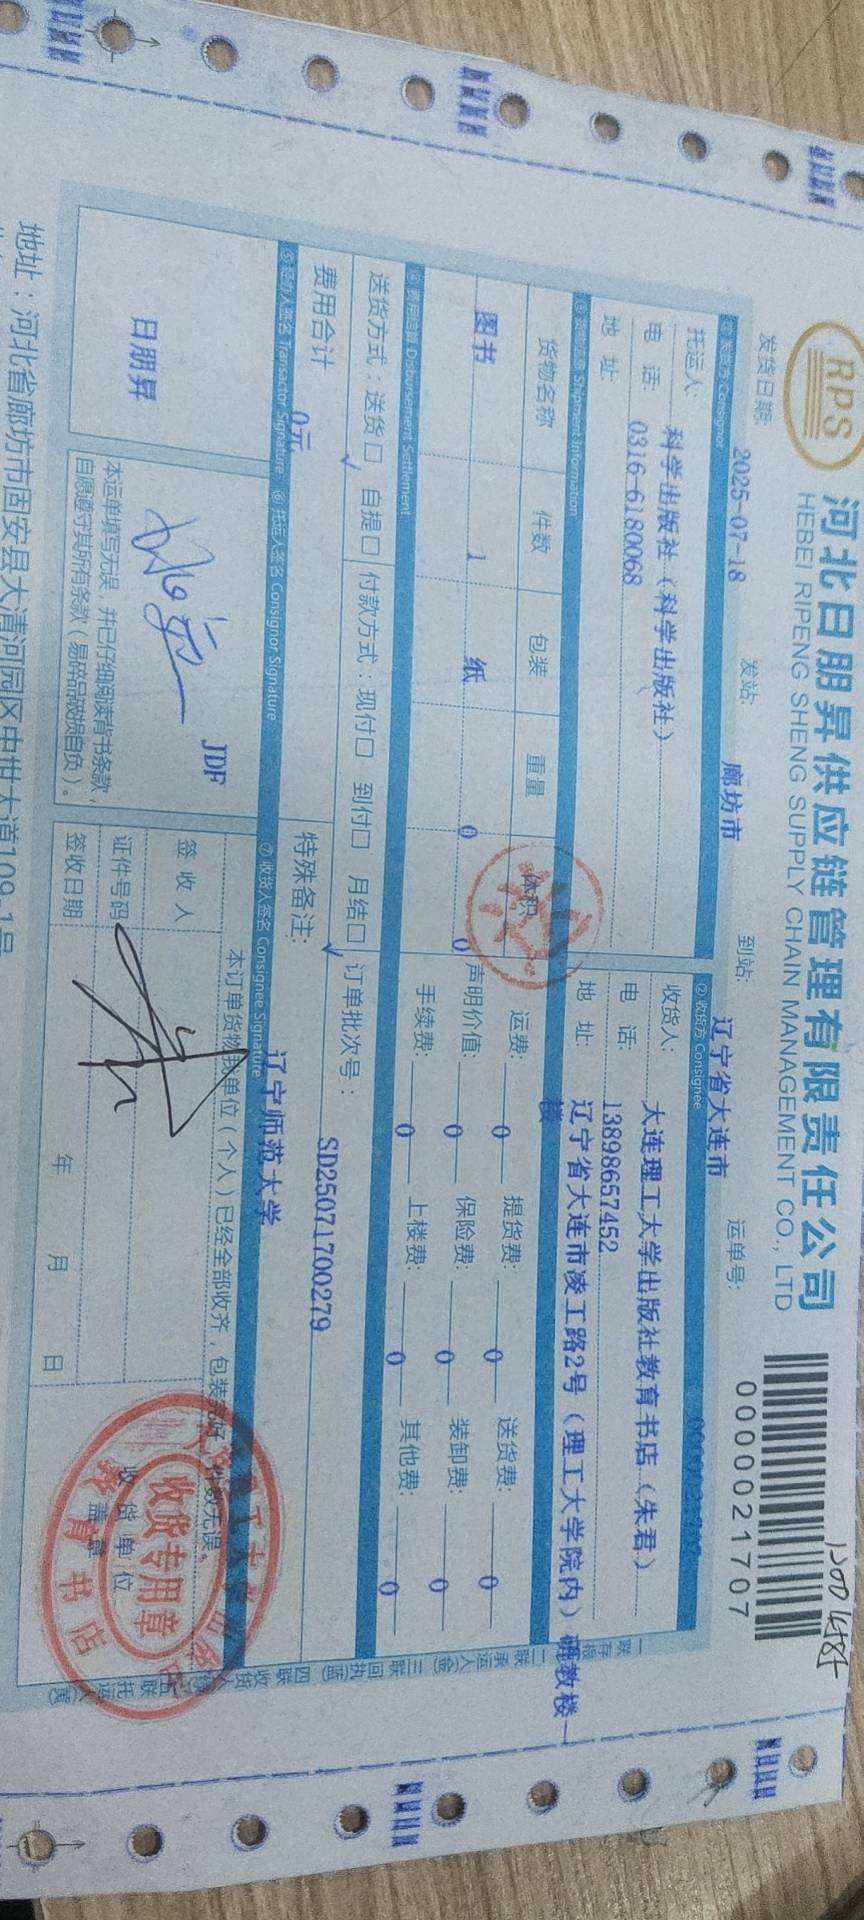 RPS
河北日朋昇供应链管理有限责任公司
HEBEI RIPENG SHENG SUPPLY CHAIN MANAGEMENT CO., LTD
0000021707
发货日期: 2025-07-18 发站: 廊坊市 到站: 辽宁省大连市 运单号:
①发货方 Consignor ②收货方 Consignee
托运人: 科学出版社(科学出版社) 收货人: 大连理工大学出版社教育书店(朱君)
电 话: 0316-6180068 电 话: 13898657452
地 址: 地 址: 辽宁省大连市凌工路2号(理工大学院内)研教楼一楼
③货物信息 Shipment Information
货物名称 件数 包装 重量 体积 运费: 0 提货费: 0 送货费: 0
图书 1 纸 0 0 声明价值: 0 保险费: 0 装卸费: 0
手续费: 0 上楼费: 0 其他费: 0
④费用结算 Disbursement Settlement
送货方式:送货□ 自提□ 付款方式:现付□ 到付□ 月结□ 订单批次号: SD25071700279
费用合计 0元 特殊备注: 辽宁师范大学
⑤经办人签名 Transactor Signature ⑥托运人签名 Consignor Signature ⑦收货人签名 Consignee Signature
日朋昇
JDF
本运单填写无误,并已仔细阅读背书条款,
自愿遵守其所有条款(易碎品破损自负)。
签收人
证件号码
签收日期 年 月 日
收货单位
盖章
收货专用章
教育书店
地址:河北省廊坊市固安县大清河园区中世大道109-1号